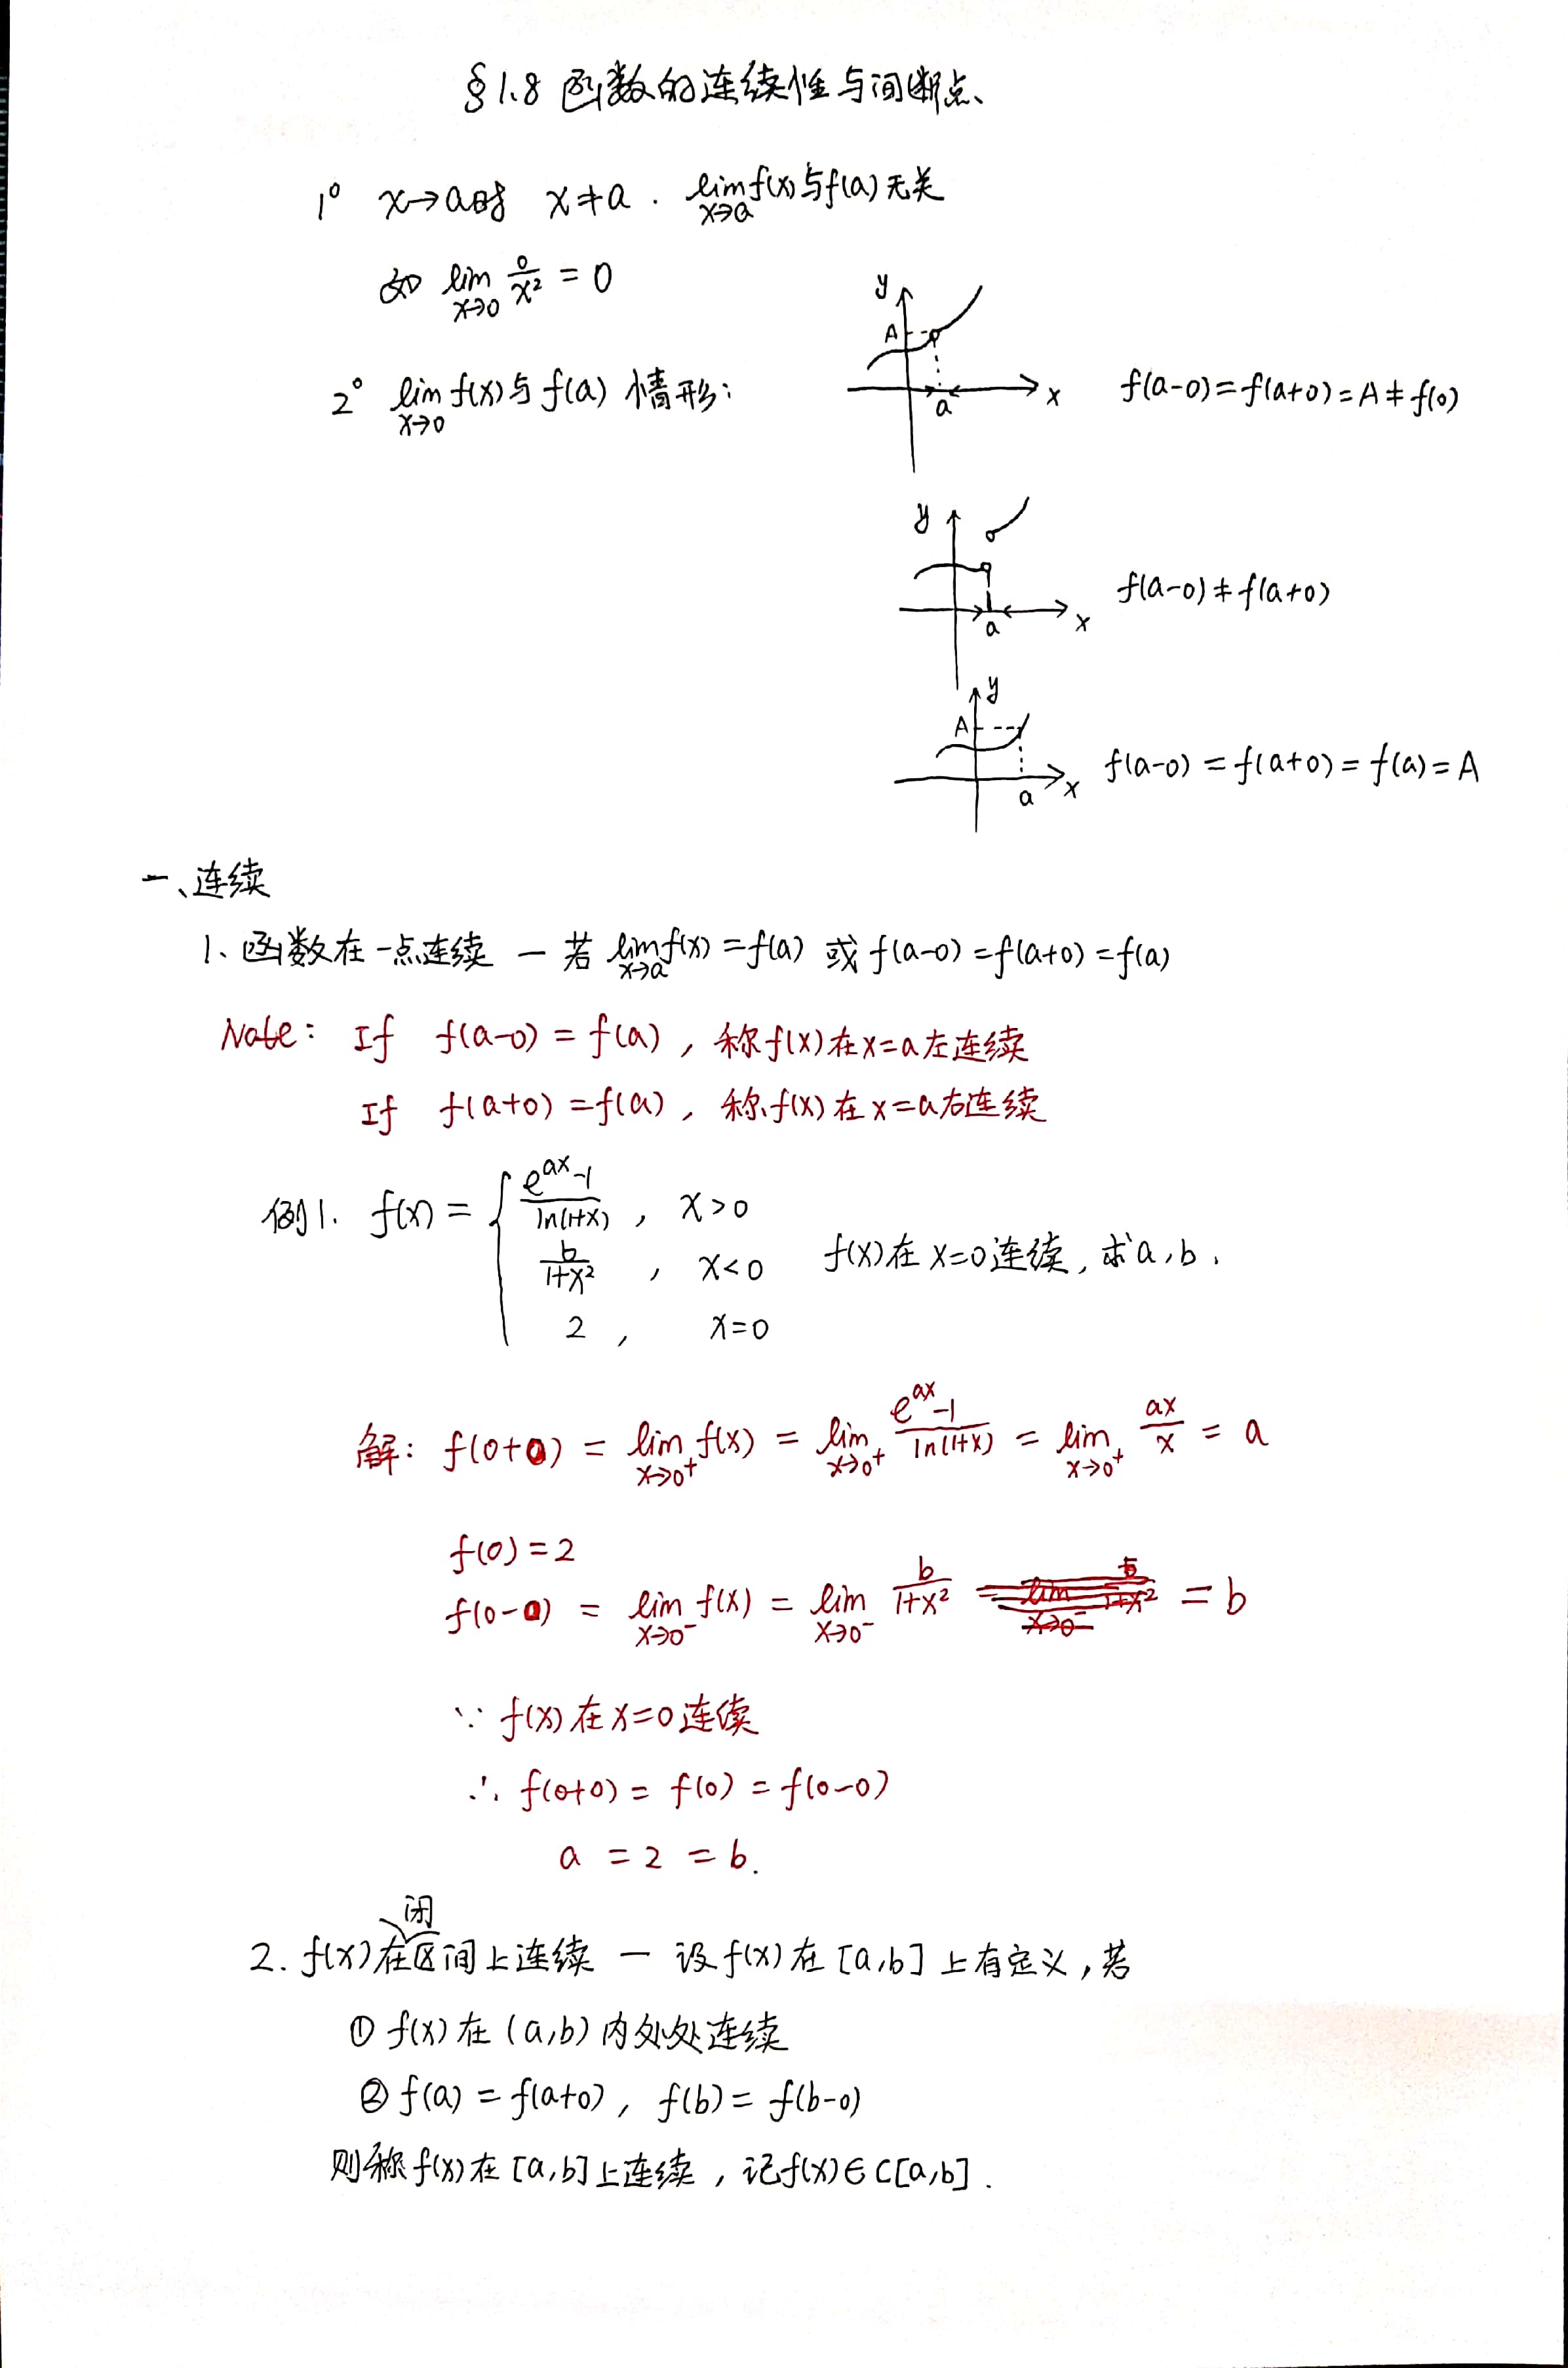 §1.8 函数的连续性与间断点、
1° x→a时 x≠a . lim_{x→a} f(x)与f(a)无关
如 lim_{x→0} 0/x² = 0
2° lim_{x→0} f(x)与 f(a) 情形:
y
A
a
x
f(a-0)=f(a+0)=A≠f(0)
y
a
x
f(a-0)≠f(a+0)
y
A
a
x
f(a-0) = f(a+0) = f(a) = A
一、连续
1、函数在一点连续 — 若 lim_{x→a} f(x) = f(a) 或 f(a-0) = f(a+0) = f(a)
Note: If f(a-0) = f(a) , 称f(x)在x=a左连续
If f(a+0) = f(a) , 称f(x)在x=a右连续
例1. f(x) = { (e^{ax}-1)/ln(1+x) , x>0
b/(1+x²) , x<0 f(x)在x=0连续, 求a,b.
2 , x=0
解: f(0+0) = lim_{x→0⁺} f(x) = lim_{x→0⁺} (e^{ax}-1)/ln(1+x) = lim_{x→0⁺} ax/x = a
f(0)=2
f(0-0) = lim_{x→0⁻} f(x) = lim_{x→0⁻} b/(1+x²) = b
∵ f(x)在x=0连续
∴ f(0+0) = f(0) = f(0-0)
a = 2 = b.
2. f(x)在闭区间上连续 — 设f(x)在[a,b]上有定义,若
① f(x)在(a,b)内处处连续
② f(a) = f(a+0), f(b) = f(b-0)
则称f(x)在[a,b]上连续, 记f(x)∈C[a,b].